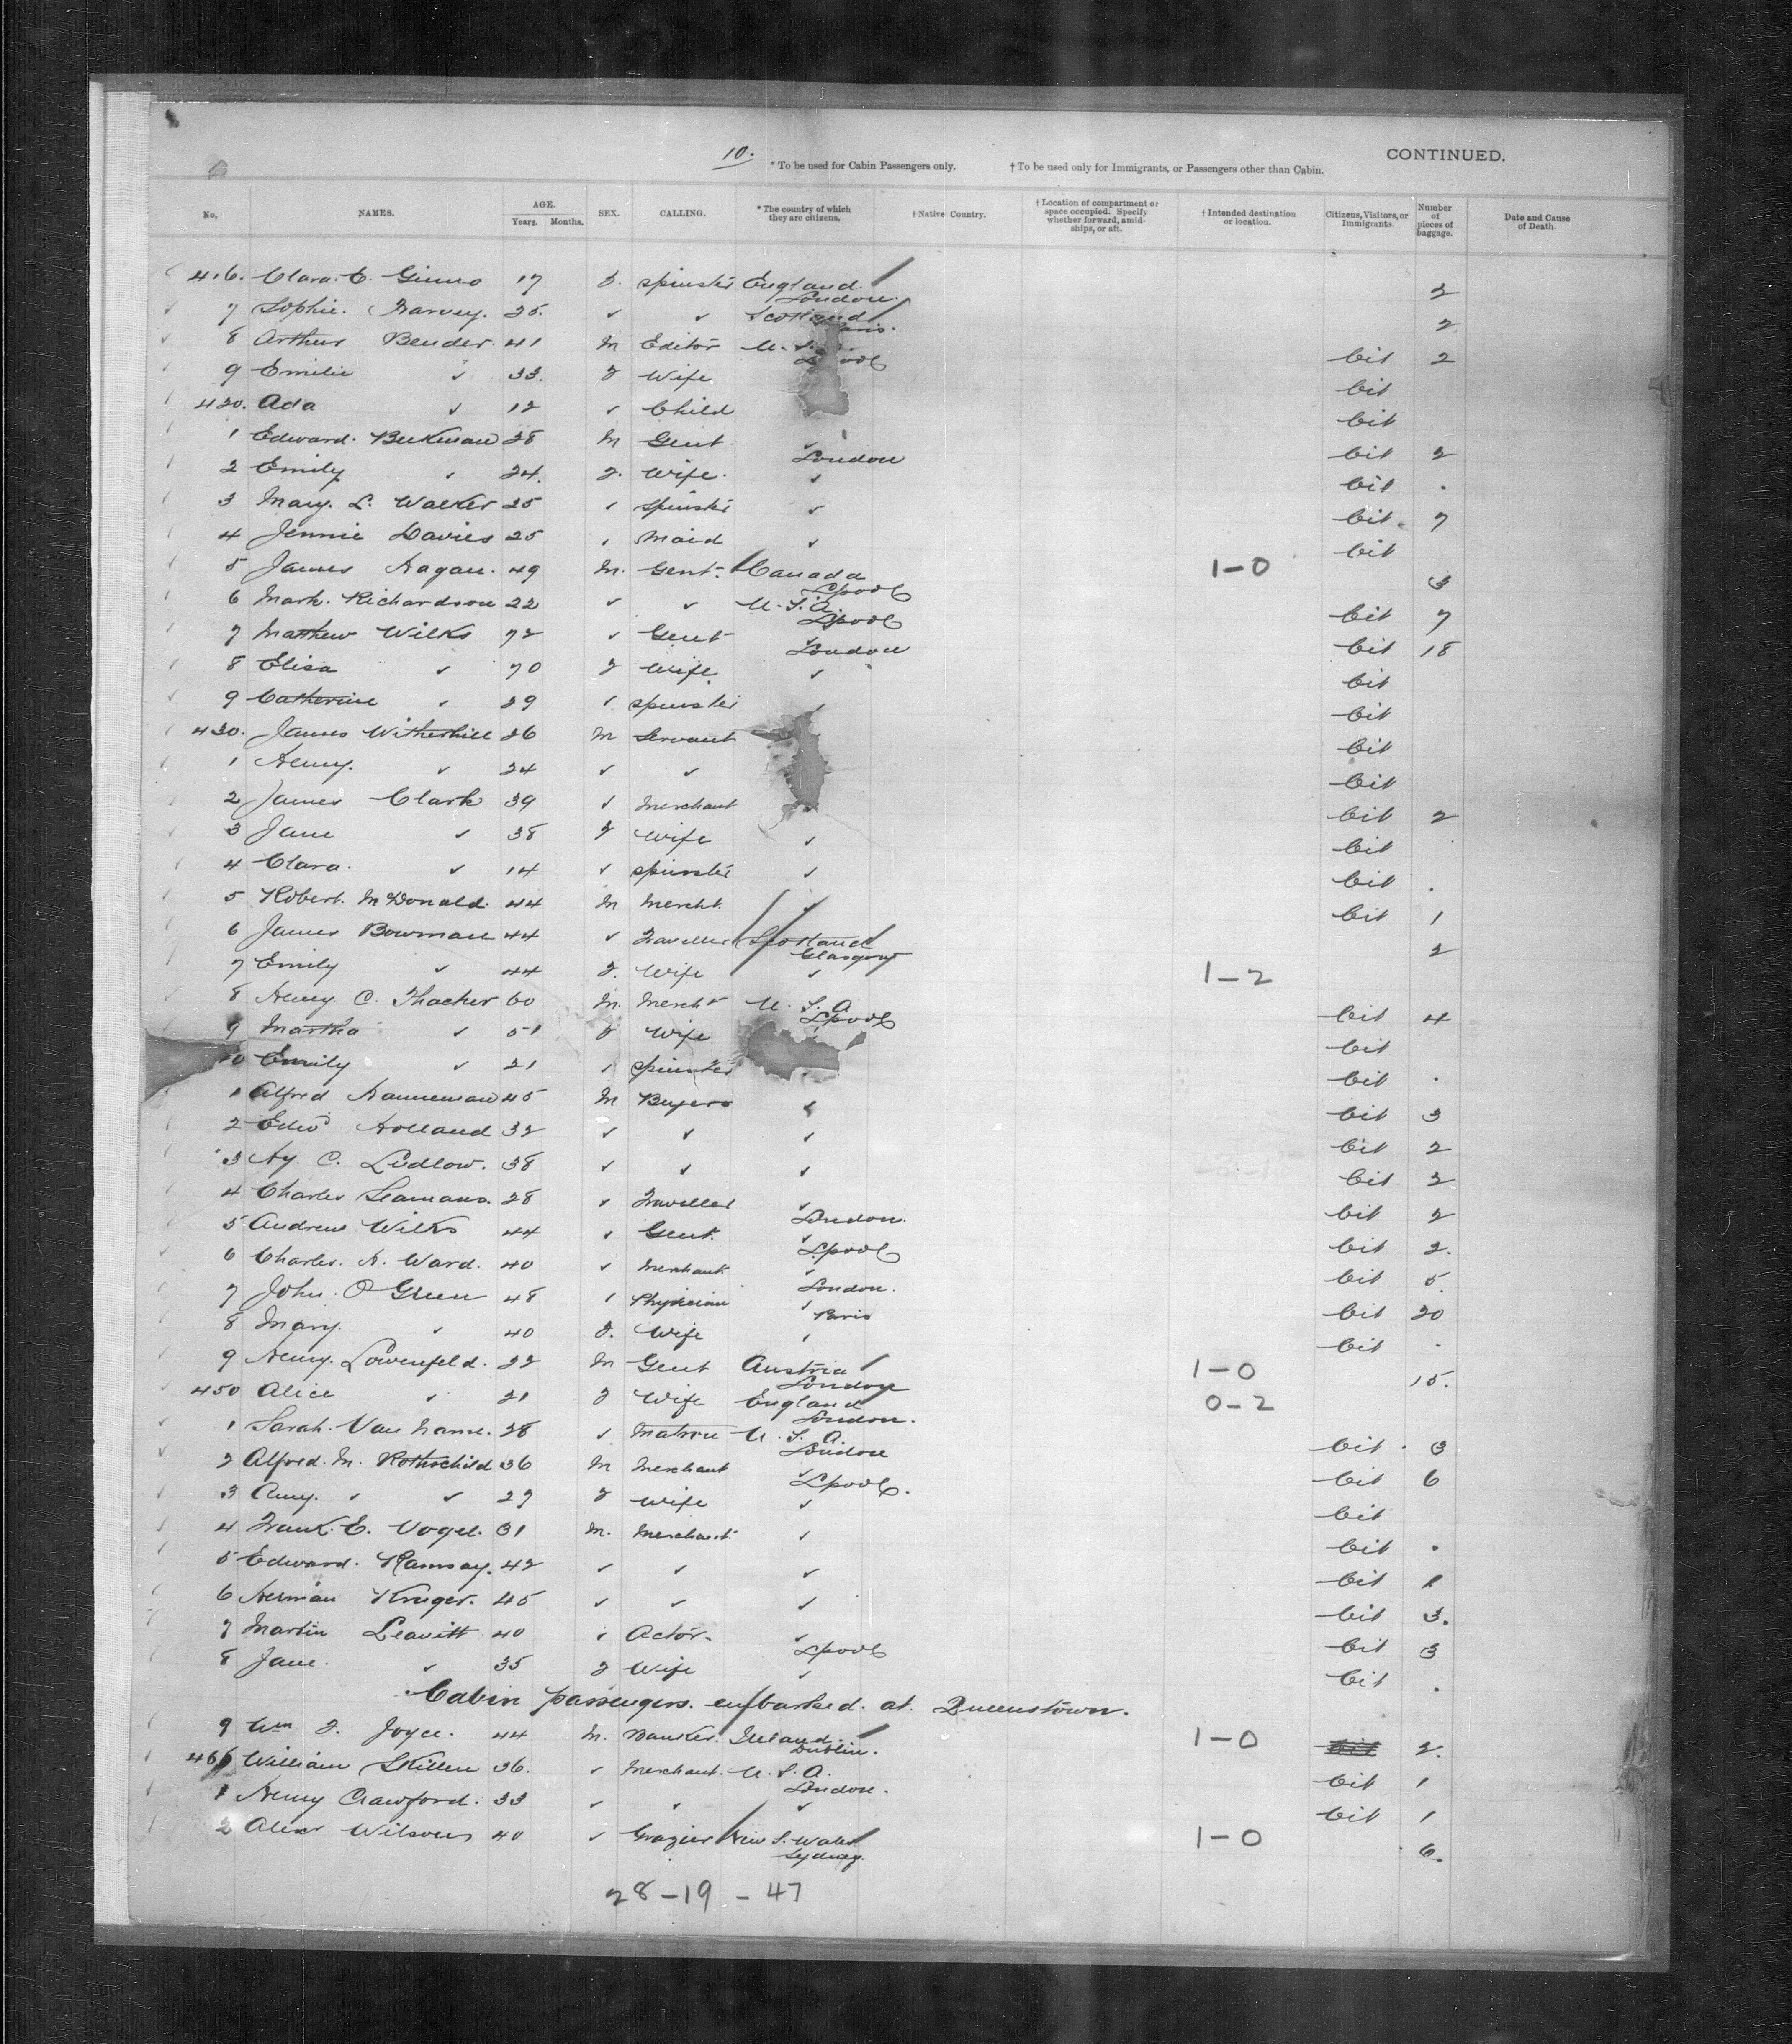 10.
* To be used for Cabin Passengers only. † To be used only for Immigrants, or Passengers other than Cabin. CONTINUED.
No. NAMES. AGE. Years. Months. SEX. CALLING. * The country of which they are citizens. † Native Country. † Location of compartment or space occupied. Specify whether forward, amidships, or aft. † Intended destination or location. Citizens, Visitors, or Immigrants. Number of pieces of baggage. Date and Cause of Death.
416. Clara. E. 17 F. Spinster England. London. 2
7 Sophie. Harvey. 25. ✓ ✓ Scotland Paris. 2
8 Arthur Bender. 41 M Editor U. S. L'pool Cit 2
9 Emilie ✓ 33. F Wife Cit
420. Ada ✓ 12 ✓ Child Cit
1 Edward. Beekman 28 M Gent ✓ London Cit 2
2 Emily ✓ 24. F. Wife. ✓ Cit .
3 Mary. L. Walker 25 ✓ Spinster ✓ Cit 7
4 Jennie Davies 25 ✓ Maid ✓ Cit
5 James Hagan. 49 M. Gent. Canada L'pool 1-0 3
6 Mark. Richardson 22 ✓ ✓ U. S. A. L'pool Cit 7
7 Matthew Wilks 72 ✓ Gent ✓ London Cit 18
8 Elisa ✓ 70 F Wife ✓ Cit
9 Catherine ✓ 29 ✓ Spinster ✓ Cit
430. James Witherhill 26 M Servant Cit
1 Henry. ✓ 24 ✓ ✓ Cit
2 James Clark 39 ✓ Merchant Cit 2
3 Jane ✓ 38 F Wife ✓ Cit
4 Clara. ✓ 14 ✓ Spinster ✓ Cit .
5 Robert. McDonald. 44 M Mercht. ✓ Cit 1
6 James Bowman 44 ✓ Traveller Scotland Glasgow 2
7 Emily ✓ 44 F. Wife ✓ 1-2
8 Henry C. Thacher 60 M. Mercht U. S. A. L'pool Cit 4
9 Martha ✓ 51 F Wife Cit
40 Emily ✓ 21 ✓ Spinster Cit .
1 Alfred Hanneman 45 M Buyers ✓ Cit 3
2 Edwd Holland 32 ✓ ✓ ✓ Cit 2
3 Hy. C. Ludlow. 38 ✓ ✓ ✓ Cit 2
4 Charles Seamans. 28 ✓ Traveller ✓ London. Cit 2
5 Andrew Wilks 44 ✓ Gent. ✓ L'pool Cit 2.
6 Charles. H. Ward. 40 ✓ Merchant ✓ London. Cit 5.
7 John. O Green 48 ✓ Physician ✓ Paris Cit 20
8 Mary. ✓ 40 F. Wife ✓ Cit .
9 Henry. Lowenfeld. 22 M Gent Austria London 1-0 15.
450 Alice ✓ 21 F Wife England London. 0-2
1 Sarah. Van Name. 28 ✓ Matron U. S. A. London Cit . 3
2 Alfred. M. Rothschild 36 M Merchant ✓ L'pool. Cit 6
3 Amy. ✓ ✓ 27 F Wife ✓ Cit
4 Frank. E. Vogel. 31 M. Merchant ✓ Cit .
5 Edward. Ramsay. 42 ✓ ✓ ✓ Cit 1
6 Herman Kruger. 45 ✓ ✓ ✓ Cit 3.
7 Martin Leavitt 40 ✓ Actor. ✓ L'pool Cit 3
8 Jane. ✓ 35 F Wife ✓ Cit .
Cabin passengers. embarked. at. Queenstown.
9 Wm F. Joyce. 44 M. Banker. Ireland. Dublin. 1-0 Cit 2.
William Skillen 36. ✓ Merchant. U. S. A. London. Cit 1
1 Henry Crawford. 33 ✓ ✓ ✓ Cit 1
2 Alexr Wilson 40 ✓ Grazier New S. Wales Sydney. 1-0 6.
28-19-47